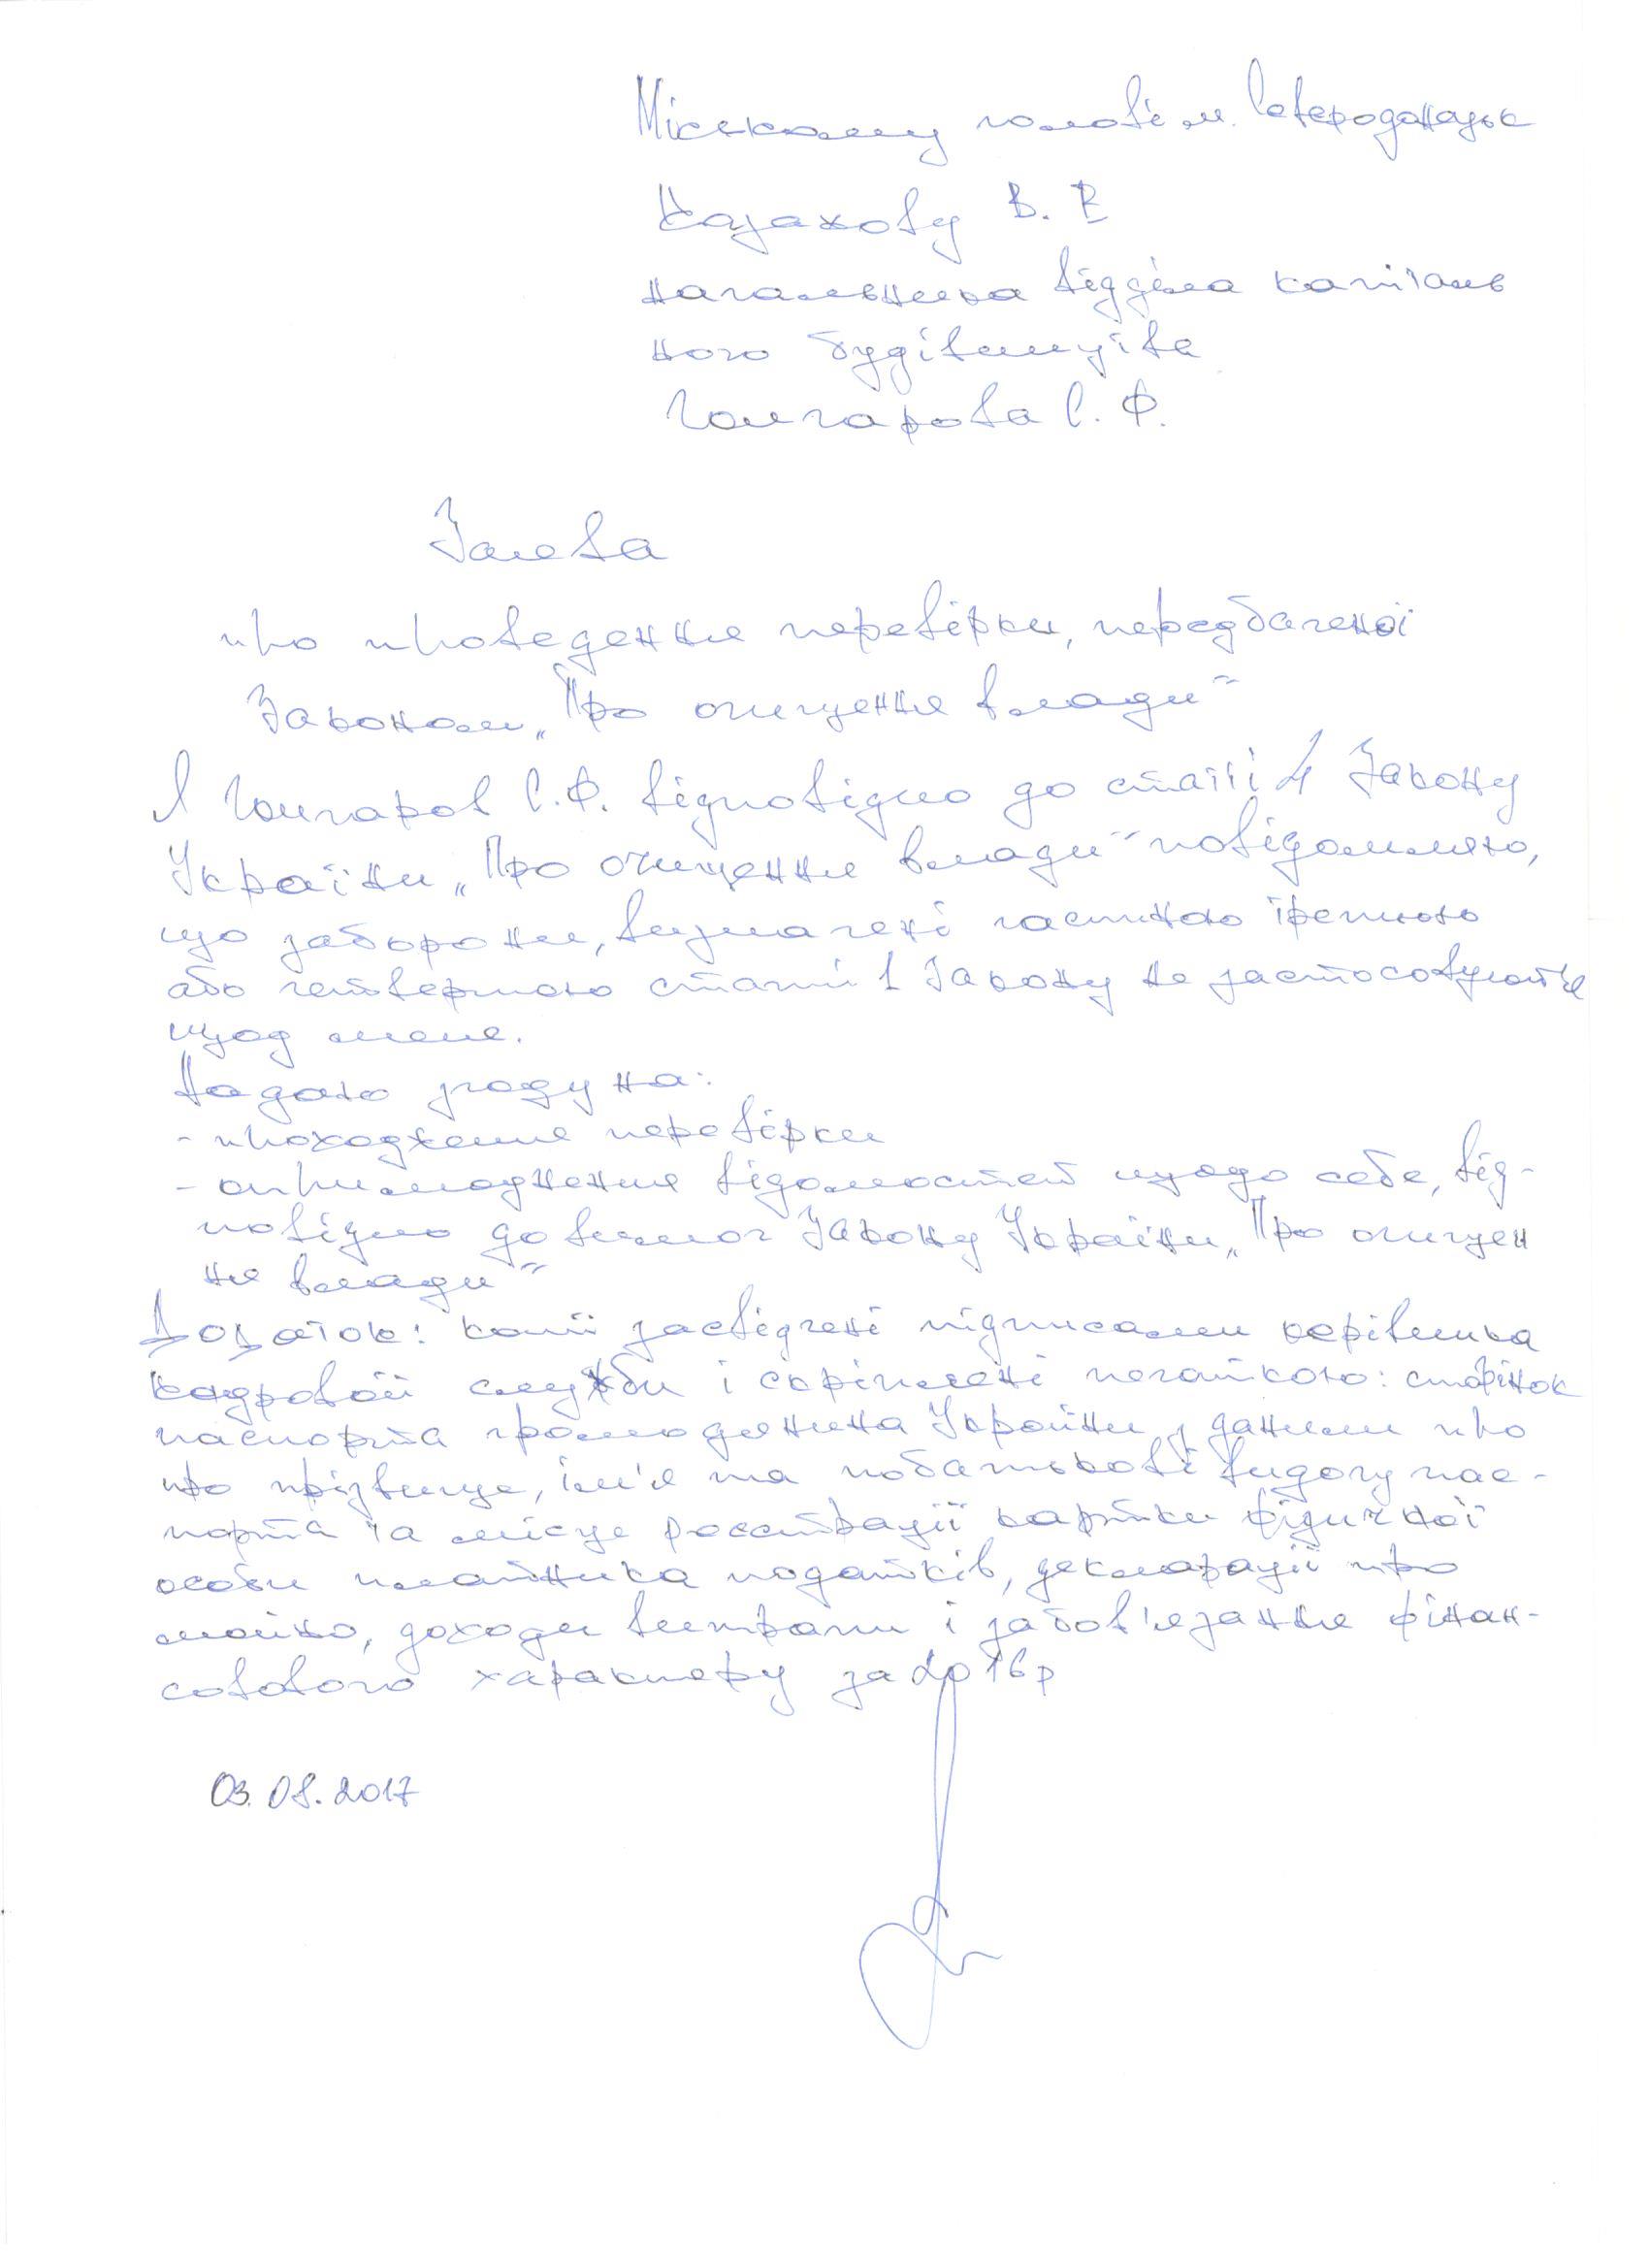 Міському голові м. Сєвєродонецьк
Казакову В. В
начальника відділа капіталь
ного будівництва
Гончарова С. Ф.
Заява
про проведення перевірки, передбаченої
Законом „Про очищення влади"
Я Гончаров С.Ф. відповідно до статті 4 Закону
України „Про очищення влади" повідомляю,
що заборони, визначені частиною третьою
або четвертою статті 1 Закону не застосовуються
щод мене.
Надаю згоду на:
- проходження перевірки
- оприлюднення відомостей щодо себе, від-
повідно до вимог Закону України „Про очищен
ня влади"
Додаток: копії засвідчені підписами керівника
кадровой служби і скріплені печаткою: сторінок
паспорта громадянина України з даними про
про прізвище, ім'я та по батькові видачу пас-
порта та місце реєстрації картки фізичної
особи платника податків, декларації про
майно, доходи витрати і забов'язання фінан-
сового характеру за 2016р
03.08.2017